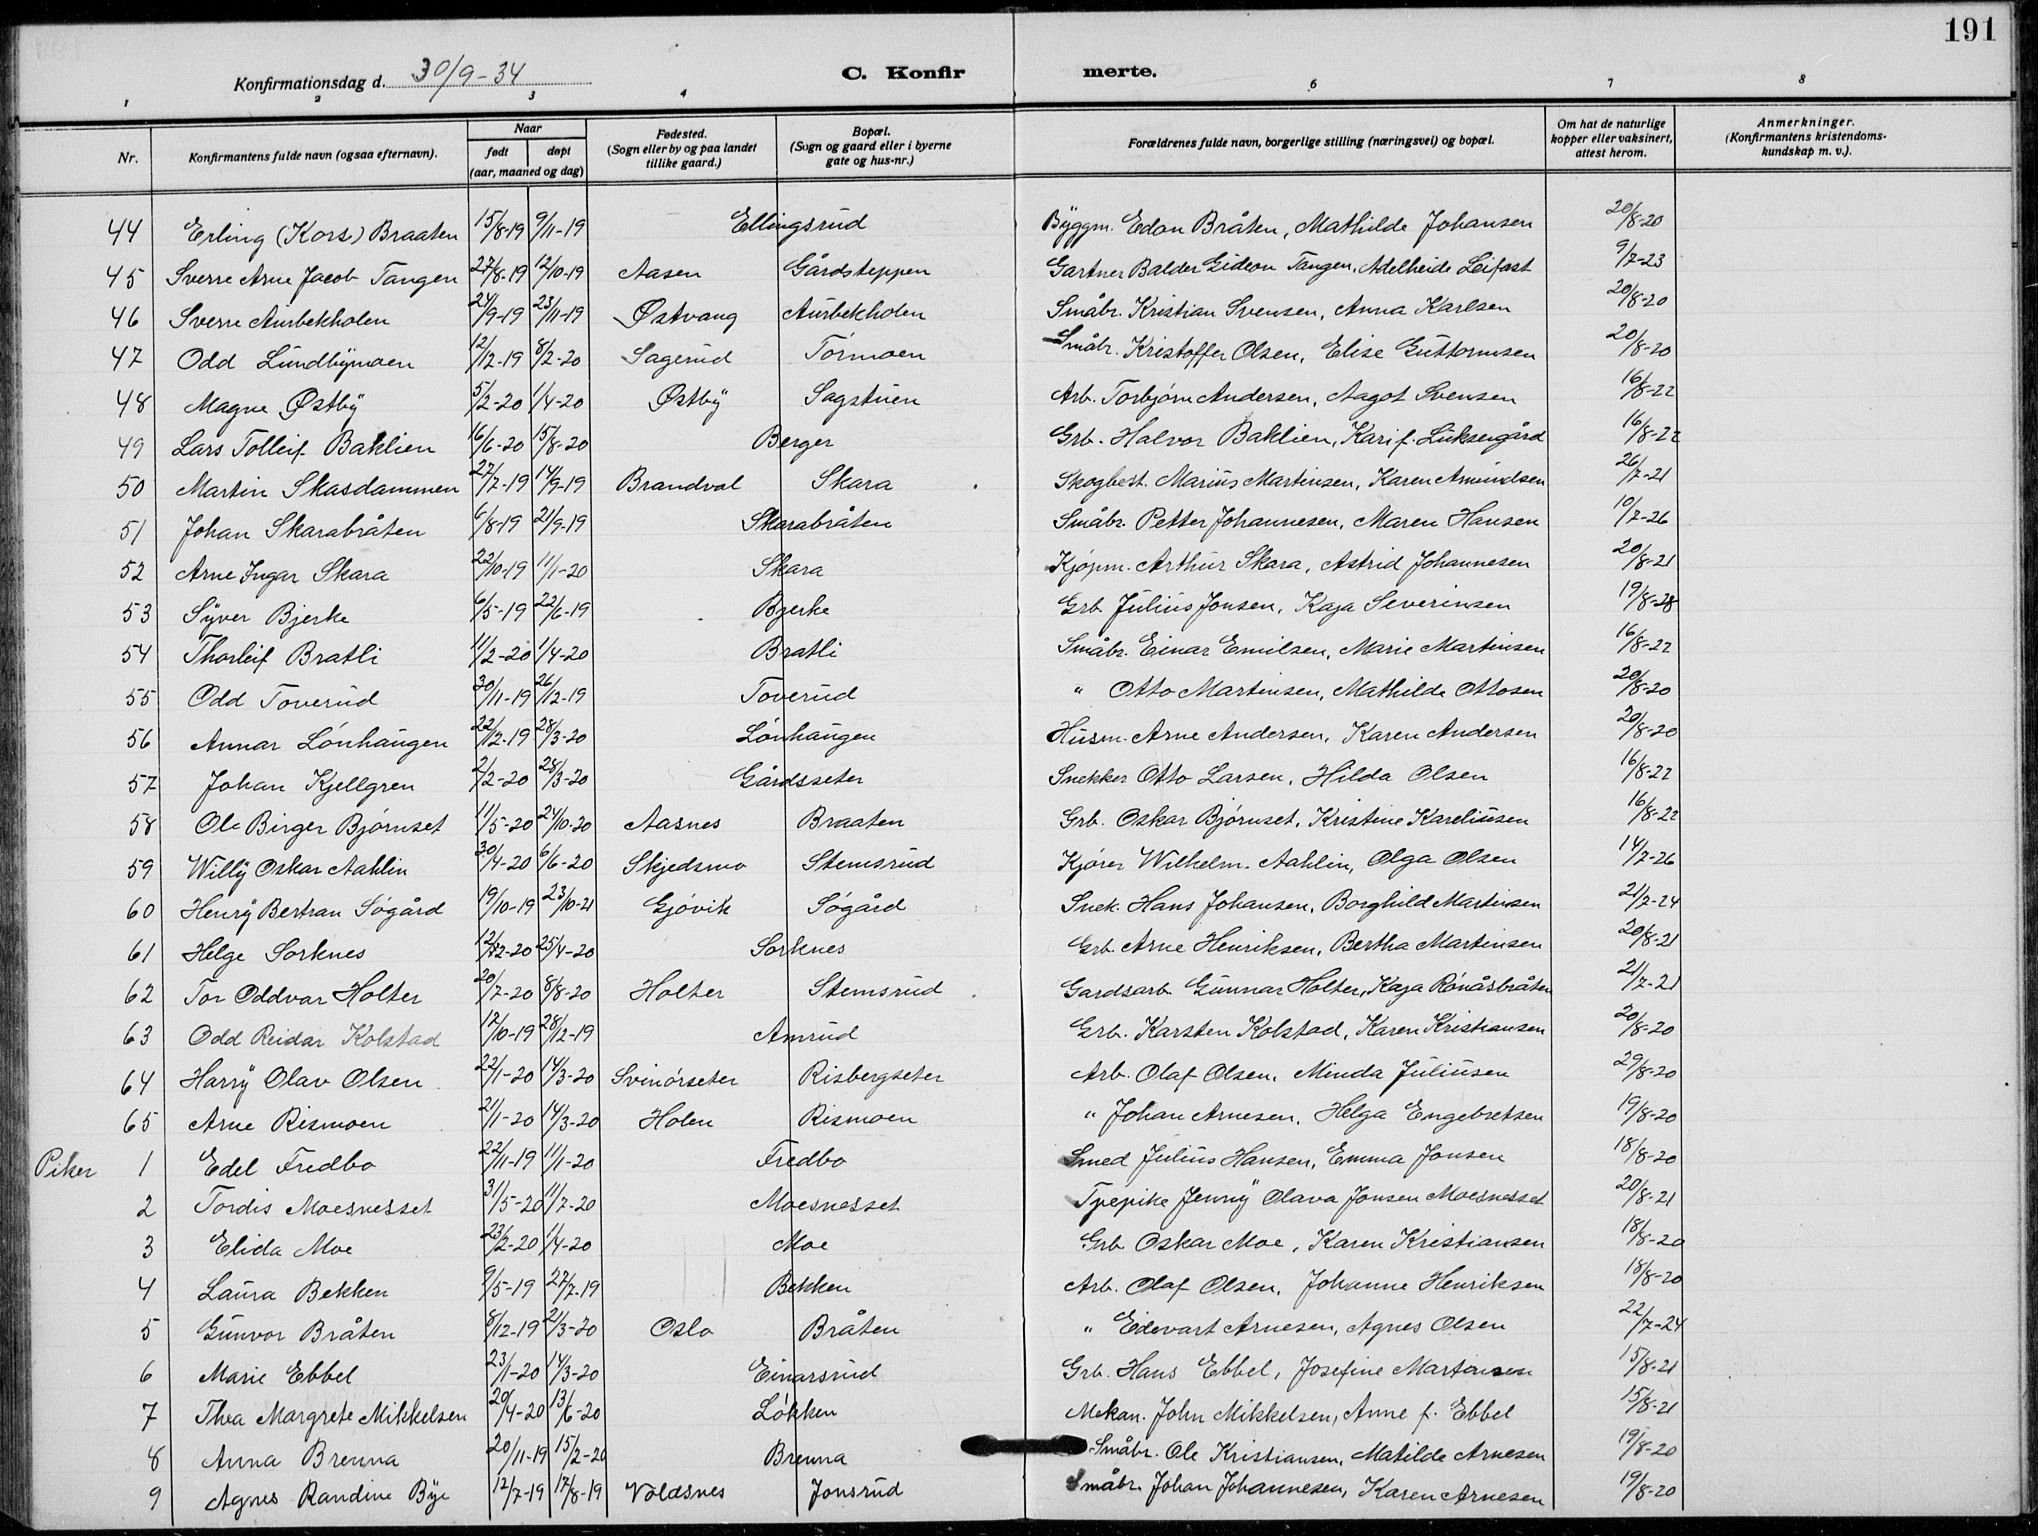 191
Konfirmationsdag d. 30/9-34
C. Konfir
merte.
1 2 3 4 6 7 8
Nr.
Konfirmantens fulde navn (ogsaa efternavn).
Naar
født
døpt
(aar, maaned og dag)
Fødested.
(Sogn eller by og paa landet
tillike gaard.)
Bopæl.
(Sogn og gaard eller i byerne
gate og hus-nr.)
Forældrenes fulde navn, borgerlige stilling (næringsvei) og bopæl.
Om hat de naturlige
kopper eller vaksinert,
attest herom.
Anmerkninger.
(Konfirmantens kristendoms-
kundskap m. v.).
44 Erling (Kors) Braaten 15/8-19 9/11-19 Ellingsrud Byggm. Edon Bråten, Mathilde Johansen 20/8-20
45 Sverre Arne Jacob Tangen 27/8-19 12/10-19 Aasen Gårdsteppen Gartner Balder Gideon Tangen, Adelheide Leifast 9/7-23
46 Sverre Aurbekholen 24/9-19 23/11-19 Østvang Aurbekholen Småbr. Kristian Svensen, Anna Karlsen 20/8-20
47 Odd Lundbymoen 12/12-19 8/2-20 Sagerud Tormoen Småbr. Kristoffer Olsen, Elise Guttormsen 20/8-20
48 Magne Østby 5/2-20 1/4-20 Østby Sagstuen Arb. Torbjørn Andersen, Aagot Svensen 16/8-22
49 Lars Tolleif Baklien 16/6-20 15/8-20 Berger Grb. Halvor Baklien, Kari f. Luksengård 16/8-22
50 Martin Skasdammen 27/7-19 14/9-19 Brandval Skara Skogbest. Marius Martinsen, Karen Amundsen 26/7-21
51 Johan Skarabråten 6/8-19 21/9-19 Skarabråten Småbr. Petter Johannesen, Maren Hansen 10/7-26
52 Arne Ingar Skara 22/10-19 11/1-20 Skara Kjøpm. Arthur Skara, Astrid Johannesen 20/8-21
53 Syver Bjerke 6/5-19 22/6-19 Bjerke Grb. Julius Jonsen, Kaja Severinsen 19/8-28
54 Thorleif Bratli 11/2-20 1/4-20 Bratli Småbr. Einar Emilsen, Marie Martinsen 16/8-22
55 Odd Toverud 30/11-19 26/12-19 Toverud " Otto Martinsen, Mathilde Ottosen 20/8-20
56 Annar Lønhaugen 22/12-19 28/3-20 Lønhaugen Husm. Arne Andersen, Karen Andersen 20/8-20
57 Johan Kjellgren 2/2-20 28/3-20 Gårdsseter Snekker Otto Larsen, Hilda Olsen 16/8-22
58 Ole Birger Bjørnset 11/5-20 24/10-20 Aasnes Braaten Grb. Oskar Bjørnset, Kristine Kareliusen 16/8-22
59 Willy Oskar Aahlin 30/4-20 6/6-20 Skjedsmo Stemsrud Kjører Wilhelm Aahlin, Olga Olsen 14/7-26
60 Henry Bertran Søgård 19/10-19 23/10-21 Gjøvik Søgård Snek. Hans Johansen, Borghild Martinsen 21/7-24
61 Helge Sorknes 12/2-20 25/4-20 Sorknes Grb. Arne Henriksen, Bertha Martinsen 20/8-21
62 Tor Oddvar Holter 20/7-20 8/8-20 Holter Stemsrud Gardsarb. Gunnar Holter, Kaja Rønåsbråten 21/7-21
63 Odd Reidar Kolstad 17/10-19 28/12-19 Amrud Grb. Karsten Kolstad, Karen Kristiansen 20/8-20
64 Harry Olav Olsen 22/1-20 14/3-20 Svinørseter Risbergseter Arb. Olaf Olsen, Minda Juliusen 29/8-20
65 Arne Rismoen 21/1-20 14/3-20 Holen Rismoen " Johan Arnesen, Helga Engebretsen 19/8-20
Piker 1 Edel Fredbo 22/11-19 11/1-20 Fredbo Smed Julius Hansen, Emma Jonsen 18/8-20
2 Tordis Moesnesset 31/5-20 11/7-20 Moesnesset Tjepike Jenny Olava Jonsen Moesnesset 20/8-21
3 Elida Moe 23/2-20 1/4-20 Moe Grb. Oskar Moe, Karen Kristiansen 18/8-20
4 Laura Bekken 9/5-19 27/7-19 Bekken Arb. Olaf Olsen, Johanne Henriksen 18/8-20
5 Gunvor Bråten 8/12-19 21/3-20 Oslo Bråten " Edevart Arnesen, Agnes Olsen 22/7-24
6 Marie Ebbel 23/1-20 14/3-20 Einarsrud Grb. Hans Ebbel, Josefine Martinsen 15/8-21
7 Thea Margrete Mikkelsen 20/4-20 13/6-20 Løkken Mekan. John Mikkelsen, Anne f. Ebbel 15/8-21
8 Anna Brenna 20/11-19 15/2-20 Brenna Småbr. Ole Kristiansen, Matilde Arnesen 19/8-20
9 Agnes Randine Bye 12/7-19 17/8-19 Volasnes Jonsrud Småbr. Johan Johannesen, Karen Arnesen 19/8-20